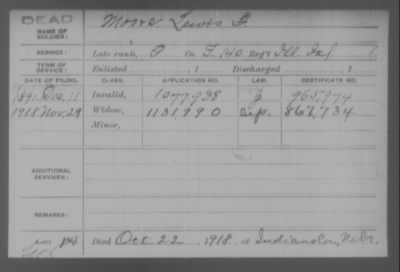 DEAD
NAME OF SOLDIER: Moore, Lewis F.
SERVICE: Late rank, P Co. I, 140 Reg't Ill. Inf.
TERM OF SERVICE: Enlisted , 1 Discharged , 1
DATE OF FILING. CLASS. APPLICATION NO. LAW. CERTIFICATE NO.
1891. Dec. 11 Invalid, 1077,938 965,974
1918 Nov. 29 Widow, 1131,790 Sep. 867,734
Minor,
ADDITIONAL SERVICES:
REMARKS:
Died Oct 22, 1918, at Indianola, Nebr.